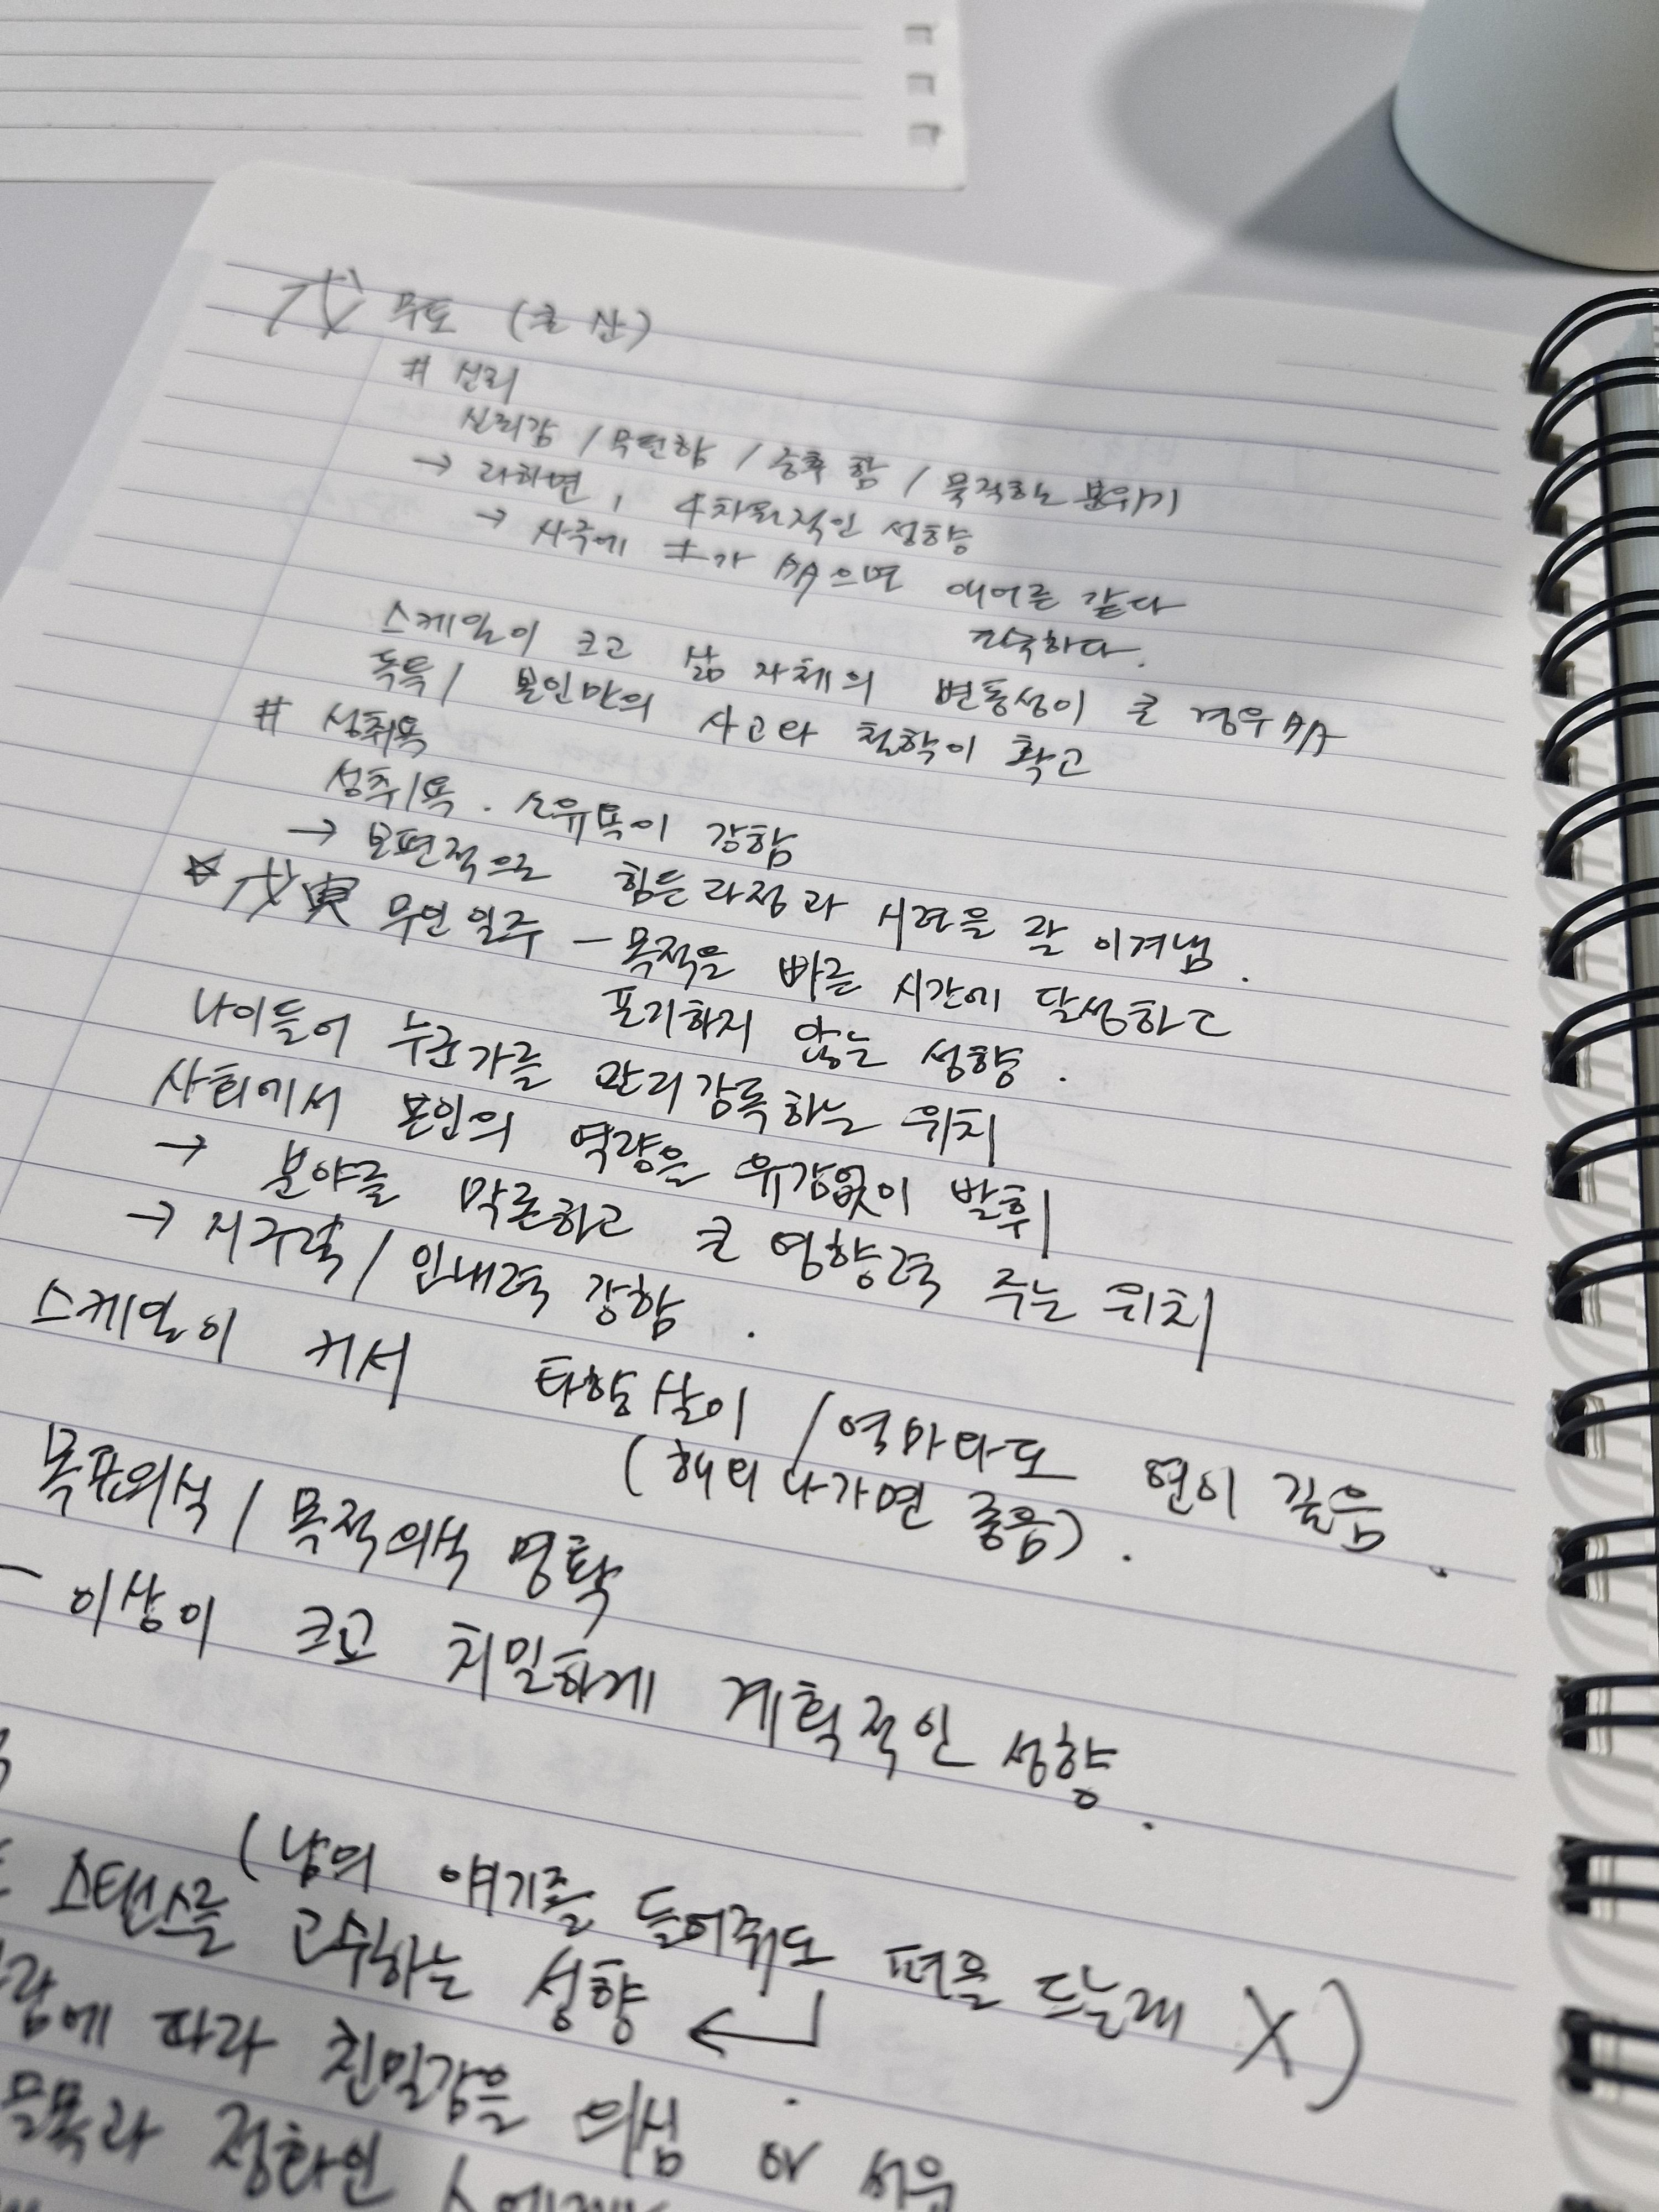 戊 무토 (큰 산)
# 심리
신뢰감 / 무던함 / 중후함 / 묵직하는 분위기
→ 과하면, 4차원적인 성향
→ 사주에 土가 많으면 애어른 같다
진국하다.
스케일이 크고 삶 자체의 변동성이 큰 경우 많
독특 / 본인만의 사고와 철학이 확고
# 성취욕
성취욕. 소유욕이 강함
→ 보편적으로 힘든과정과 시련을 잘 이겨냄.
☆ 戊寅 무인일주 - 목적을 빠른 시간에 달성하고
포기하지 않는 성향.
나이들어 누군가를 관리감독하는 위치
사회에서 본인의 역량을 유감없이 발휘
→ 분야를 막론하고 큰 영향력 주는 위치
→ 지구력 / 인내력 강함.
스케일이 커서 타향살이 / 역마와도 연이 깊음.
(해외 나가면 좋음).
목표의식 / 목적의식 명확
- 이상이 크고 치밀하게 계획적인 성향.
(남의 얘기를 들어줘도 편을 드는데 X)
스탠스를 고수하는 성향 ←
에 따라 친밀감을 의심 or
정화인